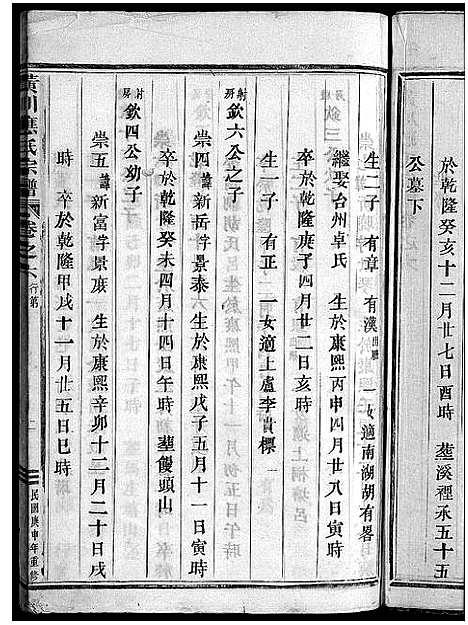 於乾隆癸亥十二月廿七日酉時　塟溪裡承五十五
公墓下
生二子　有章　有漢　一女適南湖胡有畧
繼娶台州卓氏　生於康熙丙申四月廿八日寅時
卒於乾隆庚子四月廿二日亥時
生一子　有正　一女適上盧李貴標
射房欽六公之子
崇四諱新岳字景泰　生於康熙戊子五月十一日寅時
卒於乾隆癸未四月十四日午時　塟饅頭山
射房欽四公幼子
崇五諱新富字景廣　生於康熙辛卯十二月二十日戌
時　卒於乾隆甲戌十一月廿五日巳時
黃川 氏宗譜 卷之六 行第
二
民國庚申年重修